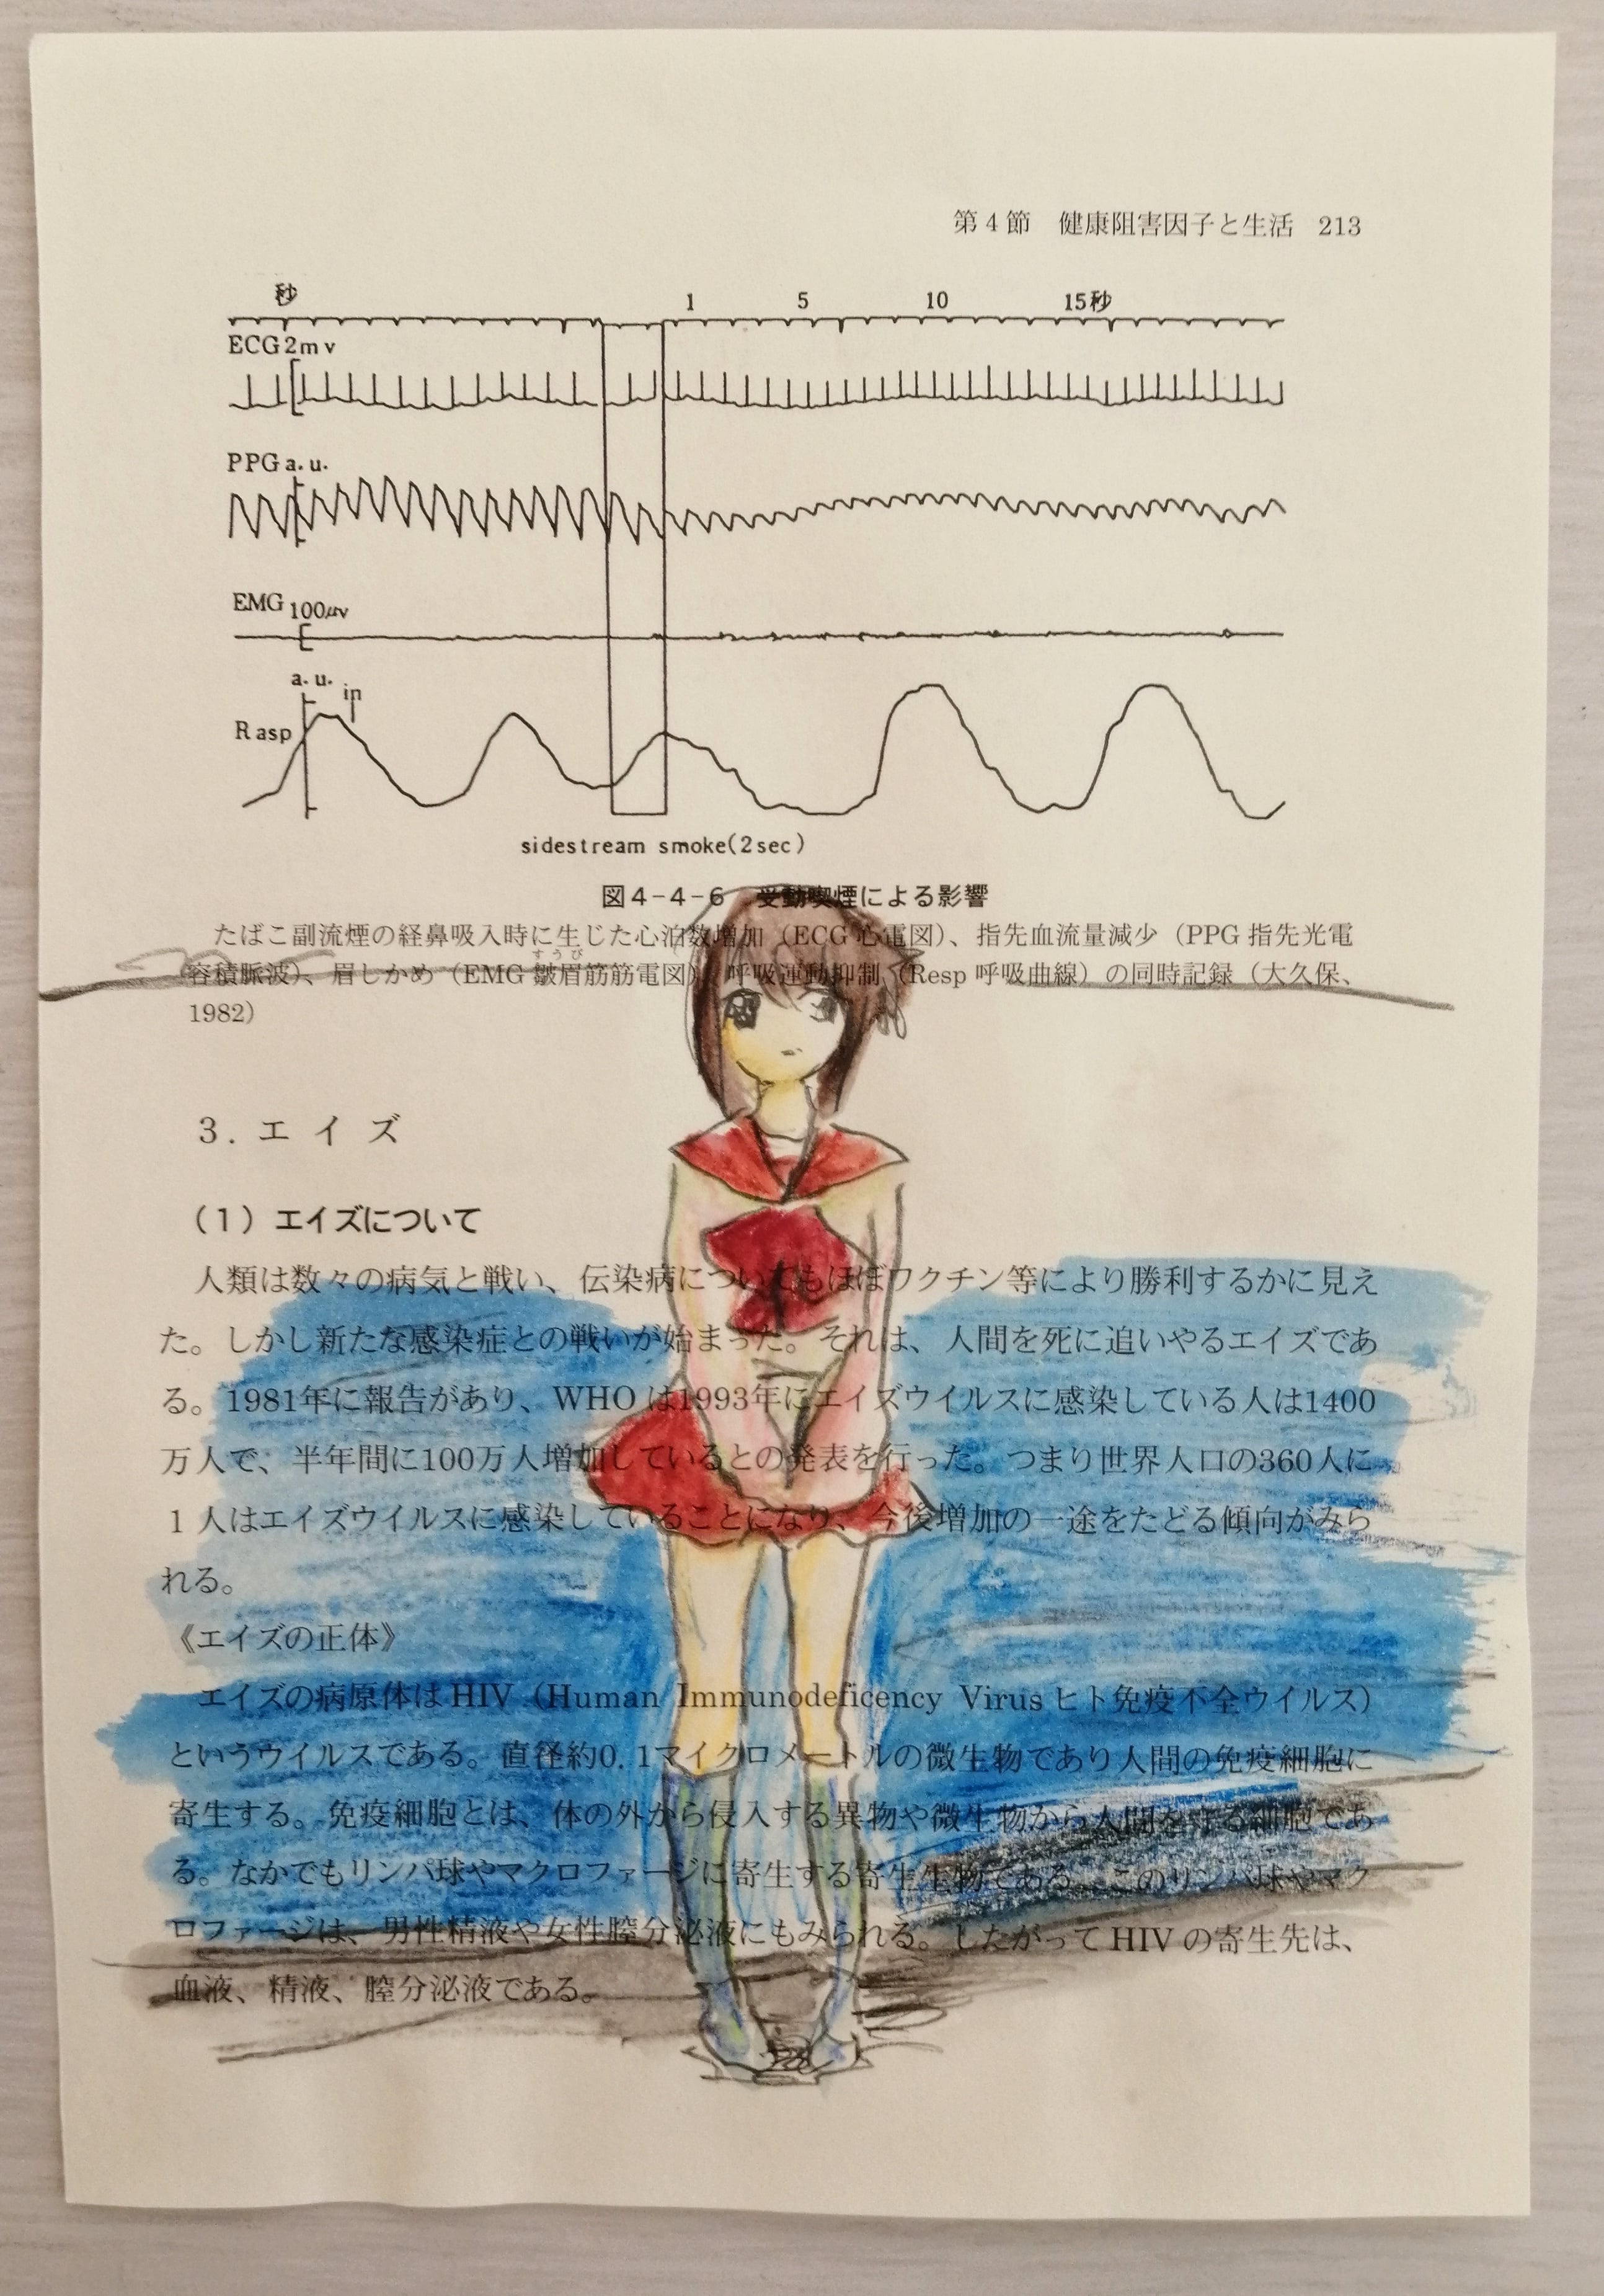 第4節 健康阻害因子と生活 213
秒 1 5 10 15秒
ECG 2mv
PPG a.u.
EMG 100μv
a.u. in
Rasp
sidestream smoke(2sec)
図4-4-6 受動喫煙による影響
たばこ副流煙の経鼻吸入時に生じた心泊数増加（ECG 心電図）、指先血流量減少（PPG 指先光電
容積脈波）、眉しかめ（EMG 皺眉筋筋電図）、呼吸運動抑制（Resp 呼吸曲線）の同時記録（大久保、
1982）
3. エイズ
（1）エイズについて
人類は数々の病気と戦い、伝染病についてもほぼワクチン等により勝利するかに見え
た。しかし新たな感染症との戦いが始まった。それは、人間を死に追いやるエイズであ
る。1981年に報告があり、WHO は1993年にエイズウイルスに感染している人は1400
万人で、半年間に100万人増加しているとの発表を行った。つまり世界人口の360人に
1人はエイズウイルスに感染していることになり、今後増加の一途をたどる傾向がみら
れる。
《エイズの正体》
エイズの病原体は HIV（Human Immunodeficency Virus ヒト免疫不全ウイルス）
というウイルスである。直径約0.1マイクロメートルの微生物であり人間の免疫細胞に
寄生する。免疫細胞とは、体の外から侵入する異物や微生物から人間を守る細胞であ
る。なかでもリンパ球やマクロファージに寄生する寄生生物である。このリンパ球やマク
ロファージは、男性精液や女性膣分泌液にもみられる。したがって HIV の寄生先は、
血液、精液、膣分泌液である。